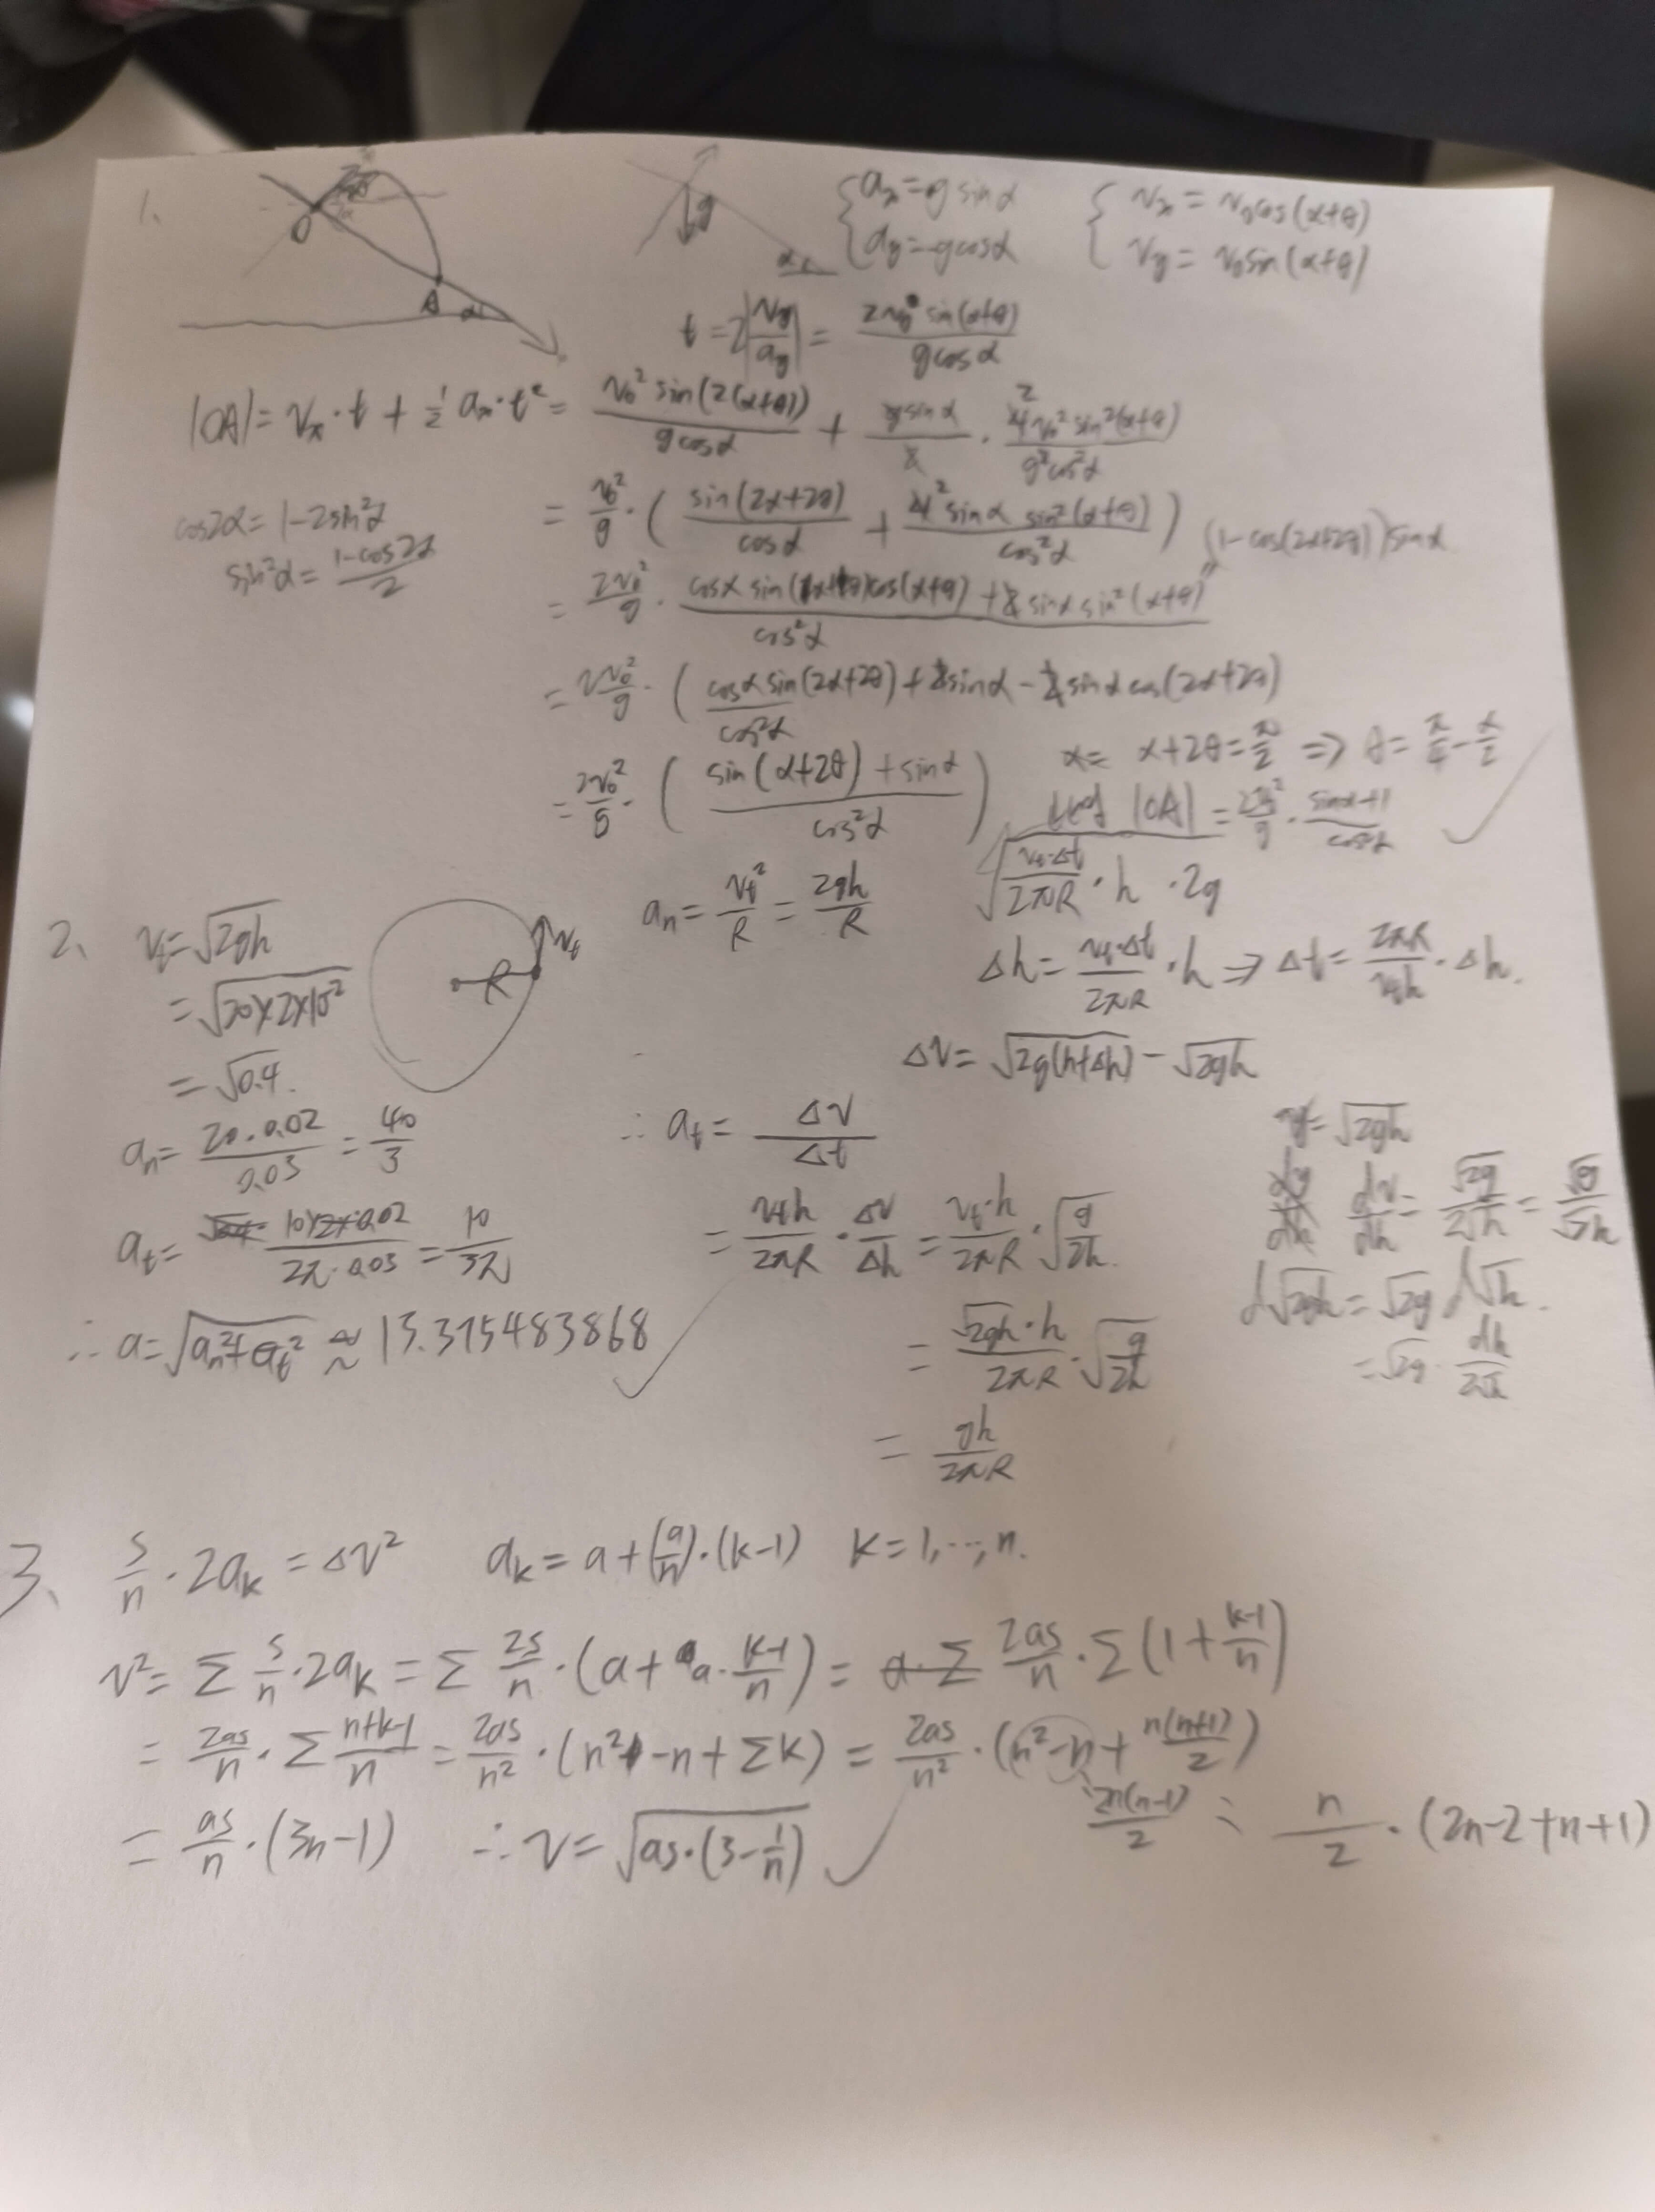 1.
O
A
α
g
α
{ aₓ = g sinα
a_y = -g cosα
{ vₓ = v₀cos(α+θ)
v_y = v₀sin(α+θ)
t = 2|v_y/a_y| = 2v₀ sin(α+θ)/(g cosα)
|OA| = vₓ·t + ½ aₓ·t² = v₀² sin(2(α+θ))/(g cosα) + g sinα/2 · 4v₀² sin²(α+θ)/(g²cos²α)
cos2α = 1-2sin²α
sin²α = (1-cos2α)/2
= v₀²/g · ( sin(2α+2θ)/cosα + 2 sinα sin²(α+θ)/cos²α )
(1-cos(2α+2θ))sinα
= 2v₀²/g · (cosα sin(α+θ)cos(α+θ) + sinα sin²(α+θ))/cos²α
= v₀²/g · ( cosα sin(2α+2θ) + sinα - sinα cos(2α+2θ)
cos²α
= v₀²/g · ( (sin(α+2θ) + sinα)/cos²α )
α+2θ = π/2 ⇒ θ = π/4 - α/2
|OA| = v₀²/g · (sinα+1)/cos²α
2、
v_t = √(2gh)
= √(20×2×10⁻²)
= √0.4.
R
v_t
a_n = v_t²/R = 2gh/R
√(v_t·Δt/(2πR) · h · 2g
Δh = v_t·Δt/(2πR) · h ⇒ Δt = 2πR/(v_t h) · Δh.
Δv = √(2g(h+Δh)) - √(2gh)
a_n = 20·0.02/0.03 = 40/3
∴ a_t = Δv/Δt
a_t = 10×0.02/(2π·0.03) = 10/3π
= v_t h/(2πR) · Δv/Δh = v_t·h/(2πR) · √(g/2h).
v = √(2gh)
dv/dh = √2g/(2√h) = √g/√2h
d√(2gh) = √2g d√h.
= √2g · dh/(2√h)
∴ a = √(a_n²+a_t²) ≈ 13.375483868
= √(2gh)·h/(2πR) · √(g/2h)
= gh/(2πR)
3、
s/n · 2a_k = Δv²
a_k = a + (a/n)·(k-1) k = 1,…,n.
v² = Σ s/n · 2a_k = Σ 2s/n · (a + a·(k-1)/n) = 2as/n · Σ(1 + (k-1)/n)
= 2as/n · Σ (n+k-1)/n = 2as/n² · (n² - n + Σk) = 2as/n² · (n² - n + n(n+1)/2)
2n(n-1)/2 = n/2 · (2n-2+n+1)
= as/n · (3n-1) ∴ v = √(as·(3-1/n))